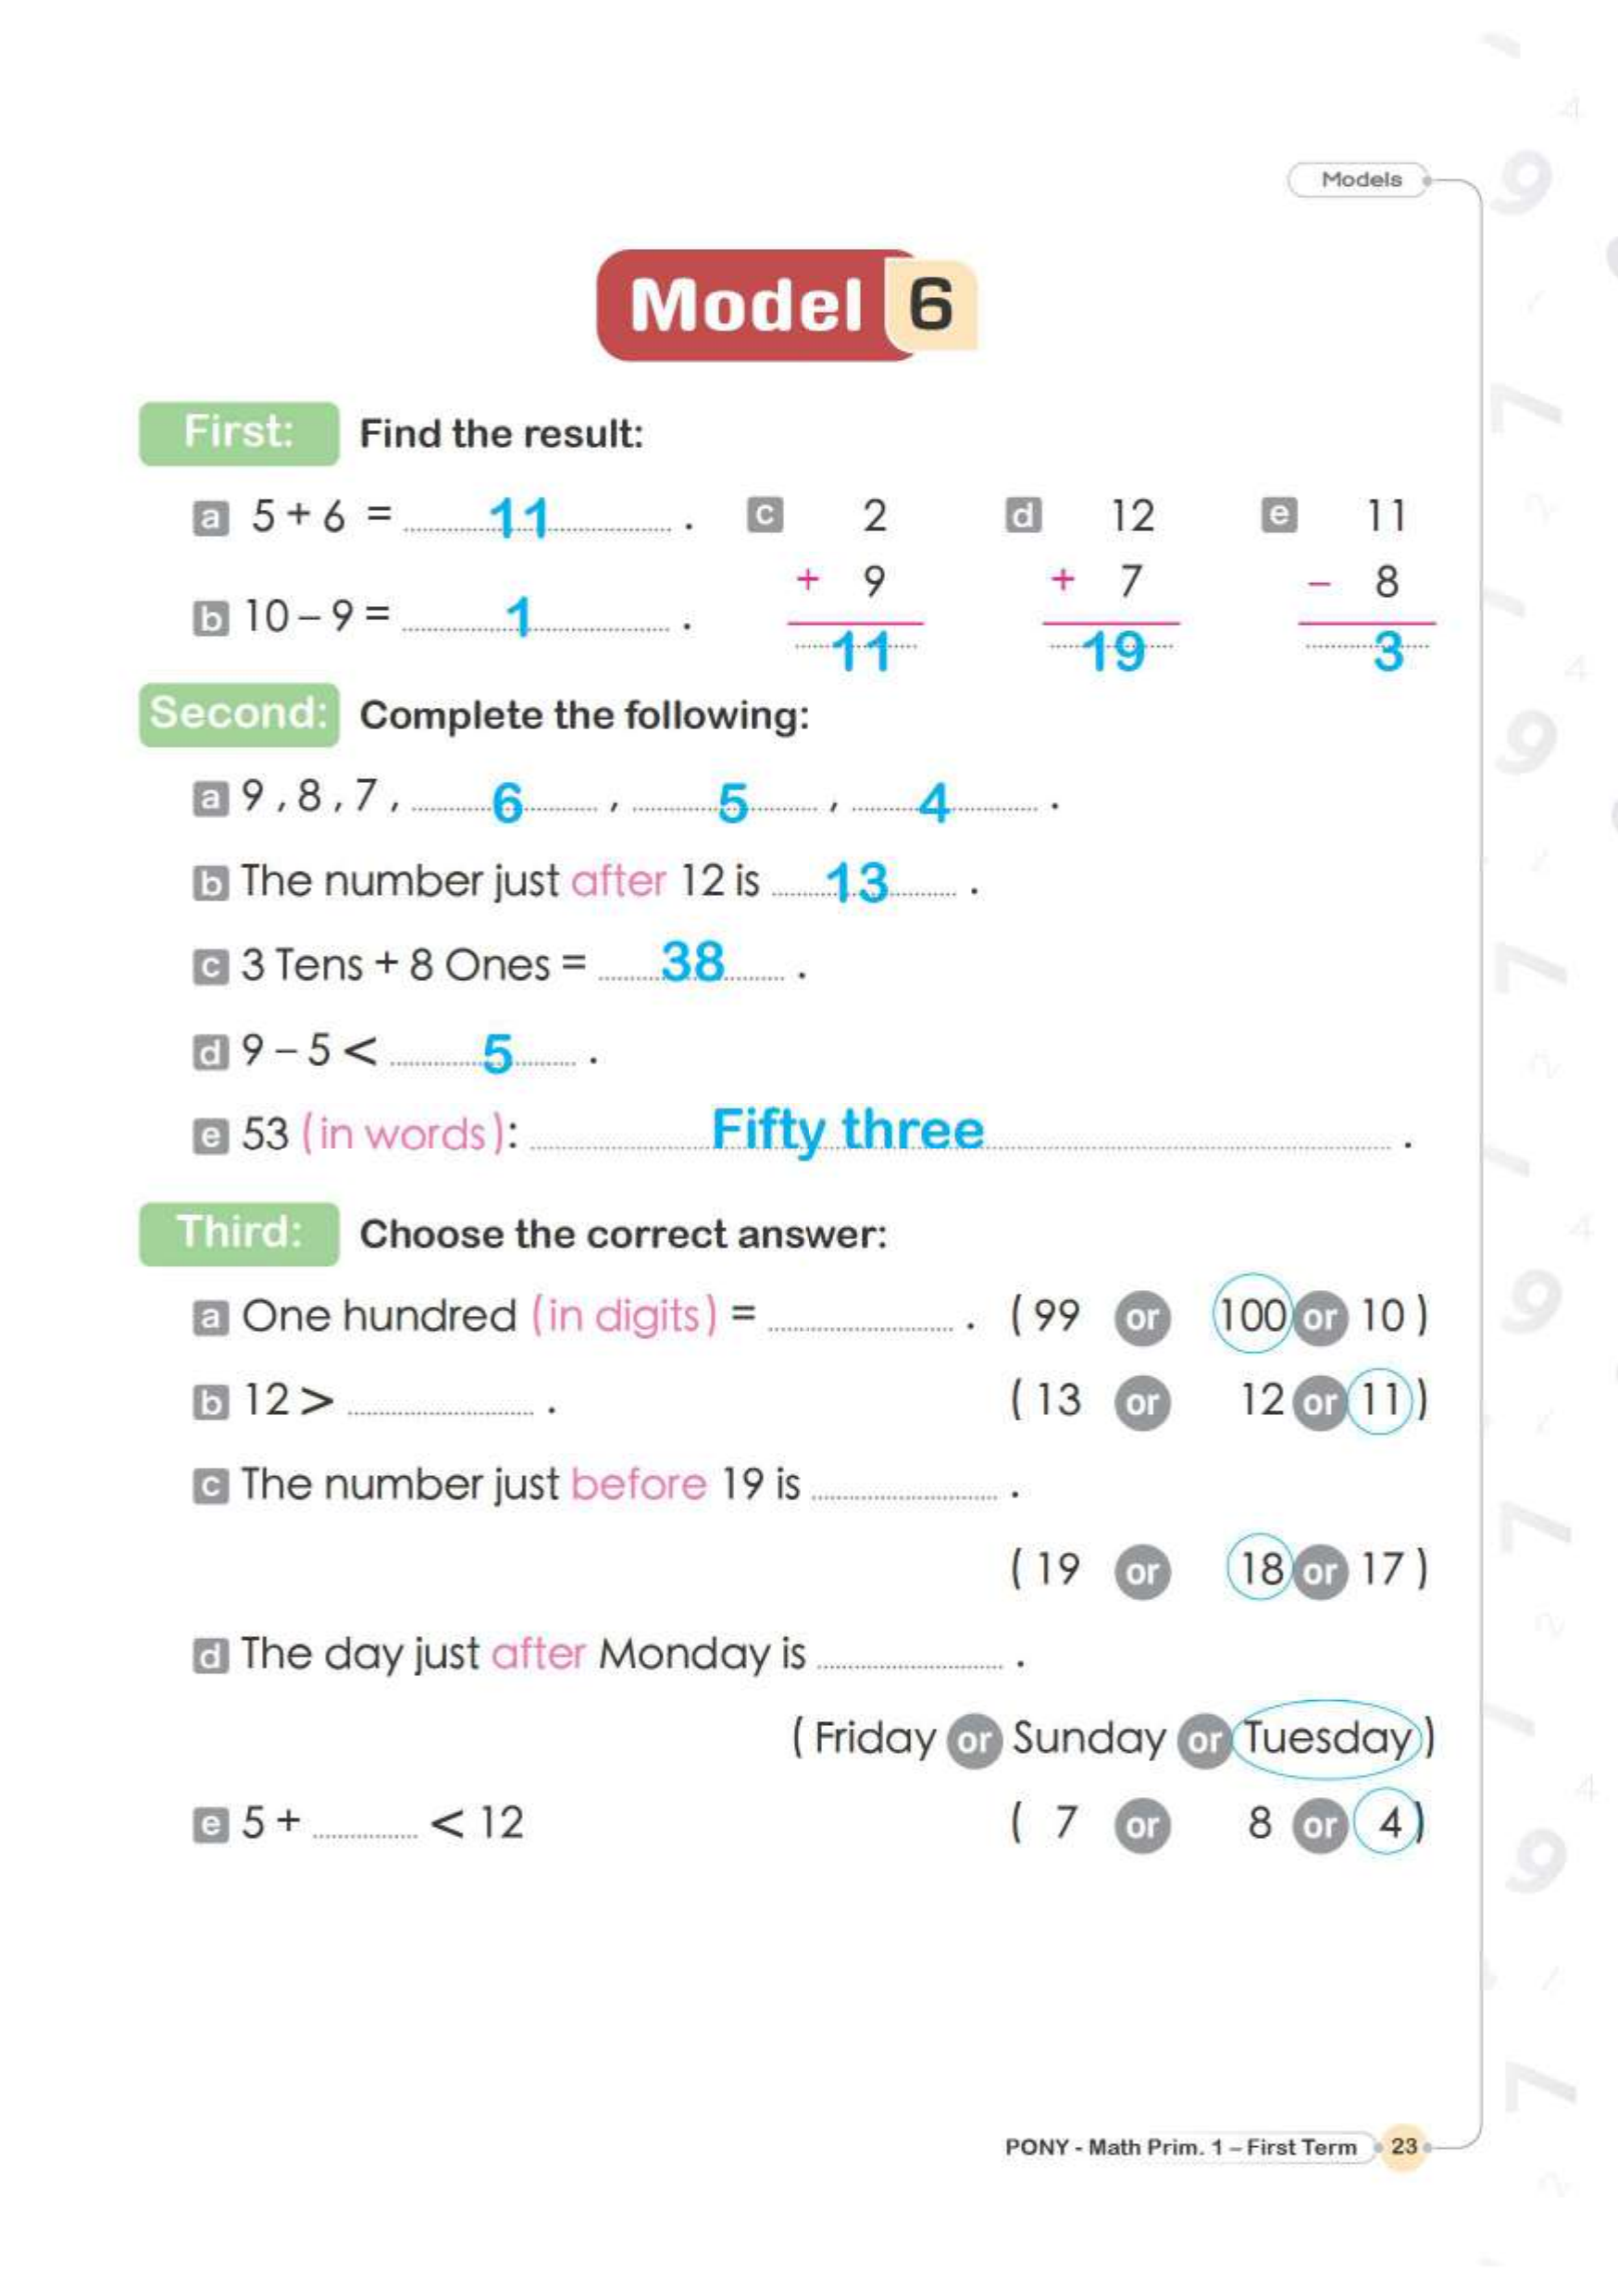 Models
Model 6
First: Find the result:
a 5 + 6 = 11 .
b 10 – 9 = 1 .
c 2 + 9 11
d 12 + 7 19
e 11 – 8 3
Second: Complete the following:
a 9 , 8 , 7 , 6 , 5 , 4 .
b The number just after 12 is 13 .
c 3 Tens + 8 Ones = 38 .
d 9 – 5 < 5 .
e 53 (in words): Fifty three .
Third: Choose the correct answer:
a One hundred (in digits) = . ( 99 or 100 or 10 )
b 12 > . ( 13 or 12 or 11 )
c The number just before 19 is .
( 19 or 18 or 17 )
d The day just after Monday is .
( Friday or Sunday or Tuesday )
e 5 + < 12 ( 7 or 8 or 4 )
PONY - Math Prim. 1 – First Term 23